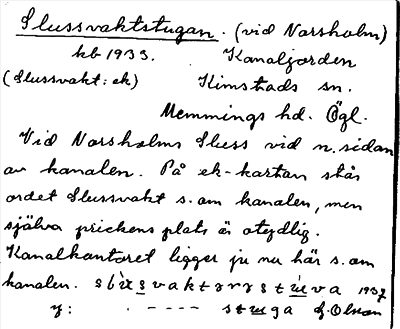 Slussvaktstugan. (vid Norsholm)
hb 1933. Kanaljorden
(Slussvakt: ek) Kimstads sn.
Memmings hd. Ögl.
Vid Norsholms Sluss vid n. sidan
av kanalen. På ek-kartan står
ordet Slussvakt s. om kanalen, men
själva prickens plats är otydlig.
Kanalkontoret ligger ju nu här s. om
kanalen.
y: - - - - stuga